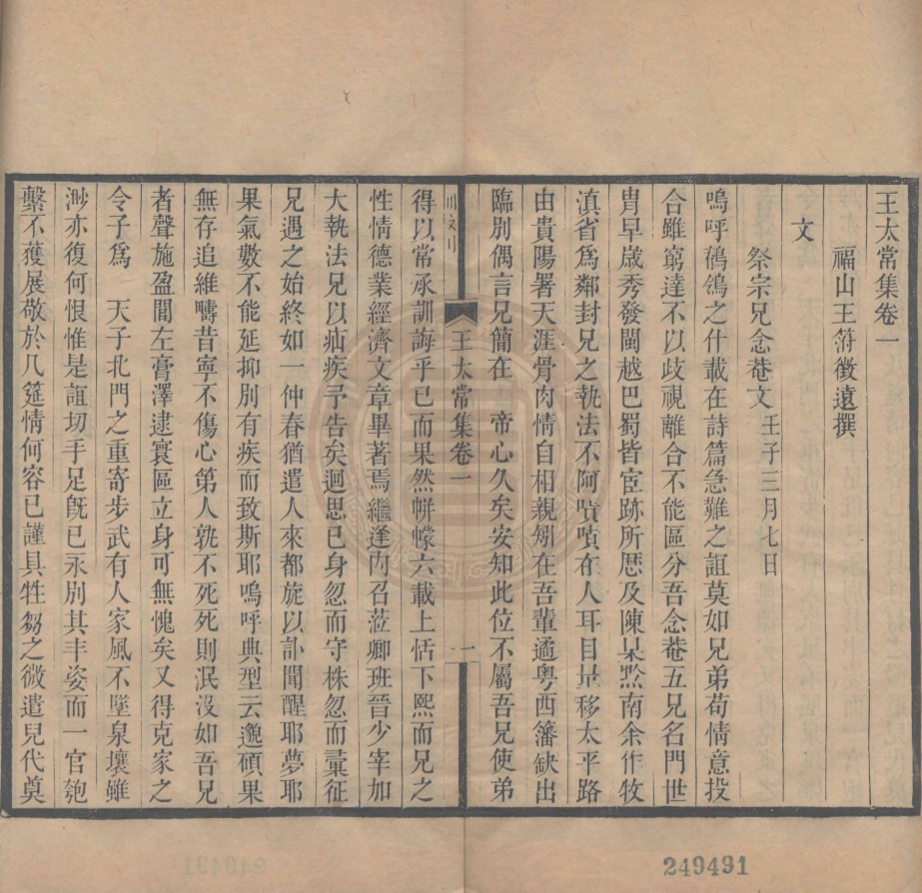 王太常集卷一
福山王㴋徵遠撰
文
祭宗兄念菴文壬子三月七日
嗚呼鶺鴒之什載在詩篇急難之誼莫如兄弟苟情意投
合雖窮達不以歧視離合不能區分吾念菴五兄名門世
胄早歲秀發閩越巴蜀皆宦跡所歷及陳臬黔南余作牧
滇省爲鄰封兄之執法不阿嘖嘖在人耳目量移太平路
由貴陽署天涯骨肉情自相親矧在吾輩適粤西籓缺出
臨別偶言兄簡在　帝心久矣安知此位不屬吾兄使弟
王太常集卷一
一
得以常承訓誨乎已而果然帡幪六載上恬下熙而兄之
性情德業經濟文章畢著焉繼逢內召蒞卿班晉少宰加
大執法兄以疝疾予告矣迴思已身忽而守株忽而彙征
兄遇之始終如一仲春猶遣人來都旋以訃聞醒耶夢耶
果氣數不能延抑別有疾而致斯耶嗚呼典型云邈碩果
無存追維疇昔寧不傷心第人孰不死死則泯沒如吾兄
者聲施盈閭左膏澤逮寰區立身可無愧矣又得克家之
令子爲　天子北門之重寄步武有人家風不墜泉壤雖
渺亦復何恨惟是誼切手足旣已永別其丰姿而一官匏
繫不獲展敬於几筵情何容已謹具牲芻之微遣兒代奠
249491